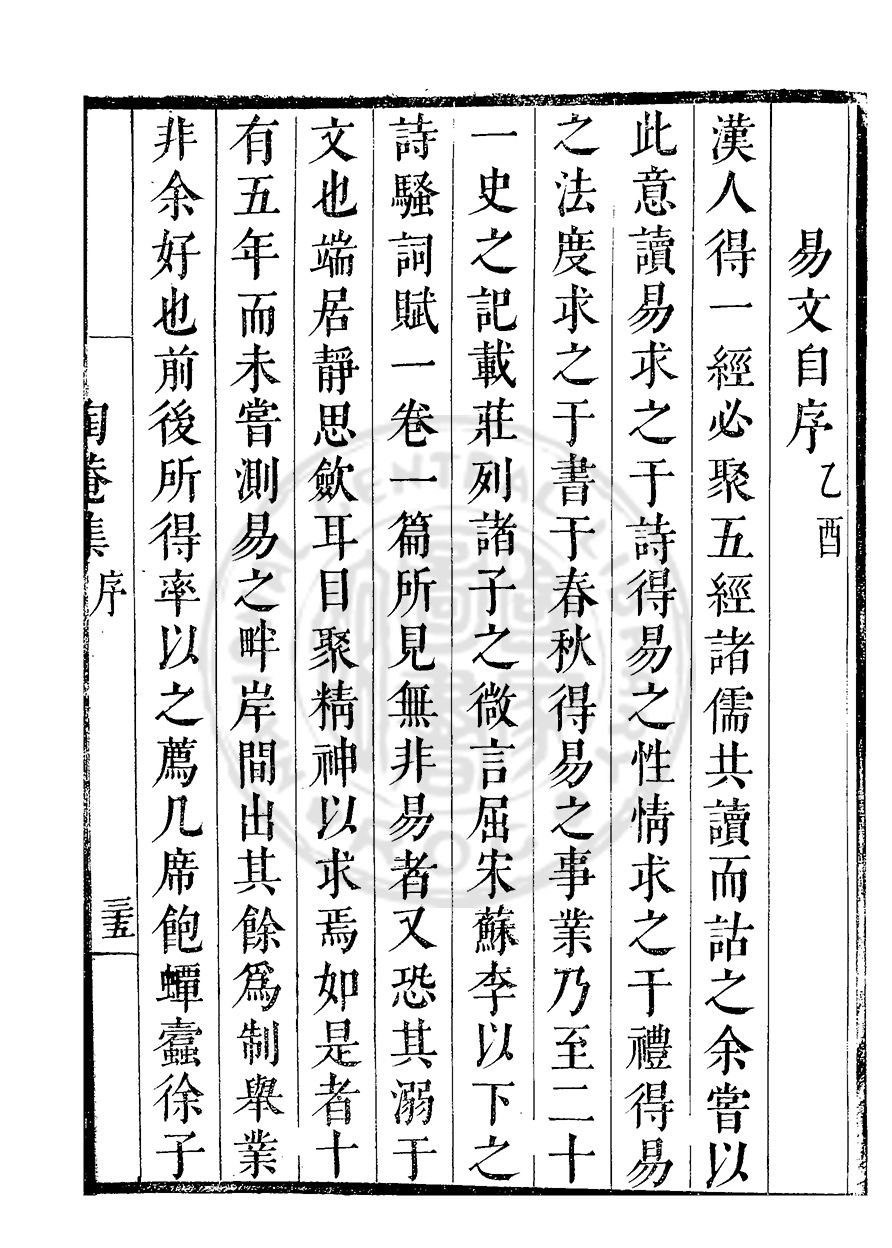 易文自序乙酉
漢人得一經必聚五經諸儒共讀而詁之余嘗以
此意讀易求之于詩得易之性情求之于禮得易
之法度求之于書于春秋得易之事業乃至二十
一史之記載莊列諸子之微言屈宋蘇李以下之
詩騷詞賦一卷一篇所見無非易者又恐其溺于
文也端居靜思歛耳目聚精神以求焉如是者十
有五年而未嘗測易之畔岸間出其餘爲制舉業
非余好也前後所得率以之薦几席飽蟫蠧徐子
陶菴集 序 三五